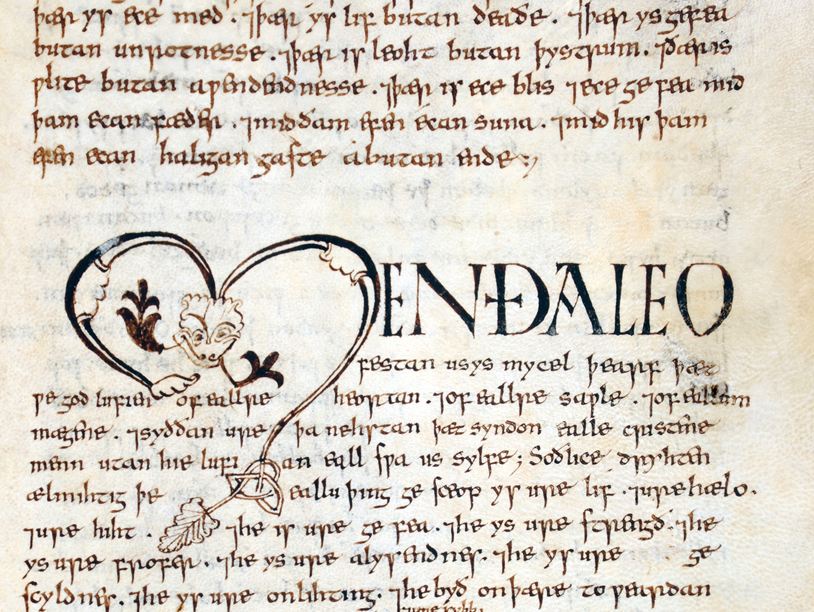 þær ys ece med . ⁊þær ys lif butan deaðe . ⁊þær ys gefea
butan unrotnesse . ⁊þær is leoht butan þystrum . ⁊ðær is
ƿlite butan aƿendednesse . ⁊þær is ece blis ⁊ece gefea mid
þam ecan fæder . ⁊mid ðam efen ecan suna . ⁊mid his þam
efen ecan haligan gaste á butan ende :,
MENÐALEO
festan us ys mycel þearf þæt
ƿe god lufien of eallre heortan . ⁊of eallre saƿle . ⁊of eallum
mægne . ⁊syððan ure þa nehstan þæt syndon ealle cristene
menn utan hie lufian eall sƿa us sylfe ; Soðlice dryhten
ælmihtig þe eallu þing gesceop ys ure lif . ⁊ure hælo .
⁊ure hiht . ⁊he is ure gefea . ⁊he ys ure strengð . ⁊he
ys ure frofer . ⁊he ys ure alysendnes . ⁊he ys ure ge
scyldnes . ⁊he ys ure onlihting . ⁊he byð on þære toƿeardan